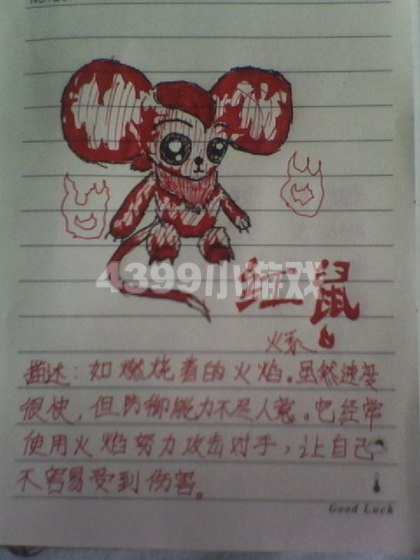 4399小游戏
红鼠
火系
描述：如燃烧着的火焰。虽然速度
很快，但防御能力不尽人意。它经常
使用火焰努力攻击对手，让自己
不容易受到伤害。
Good Luck